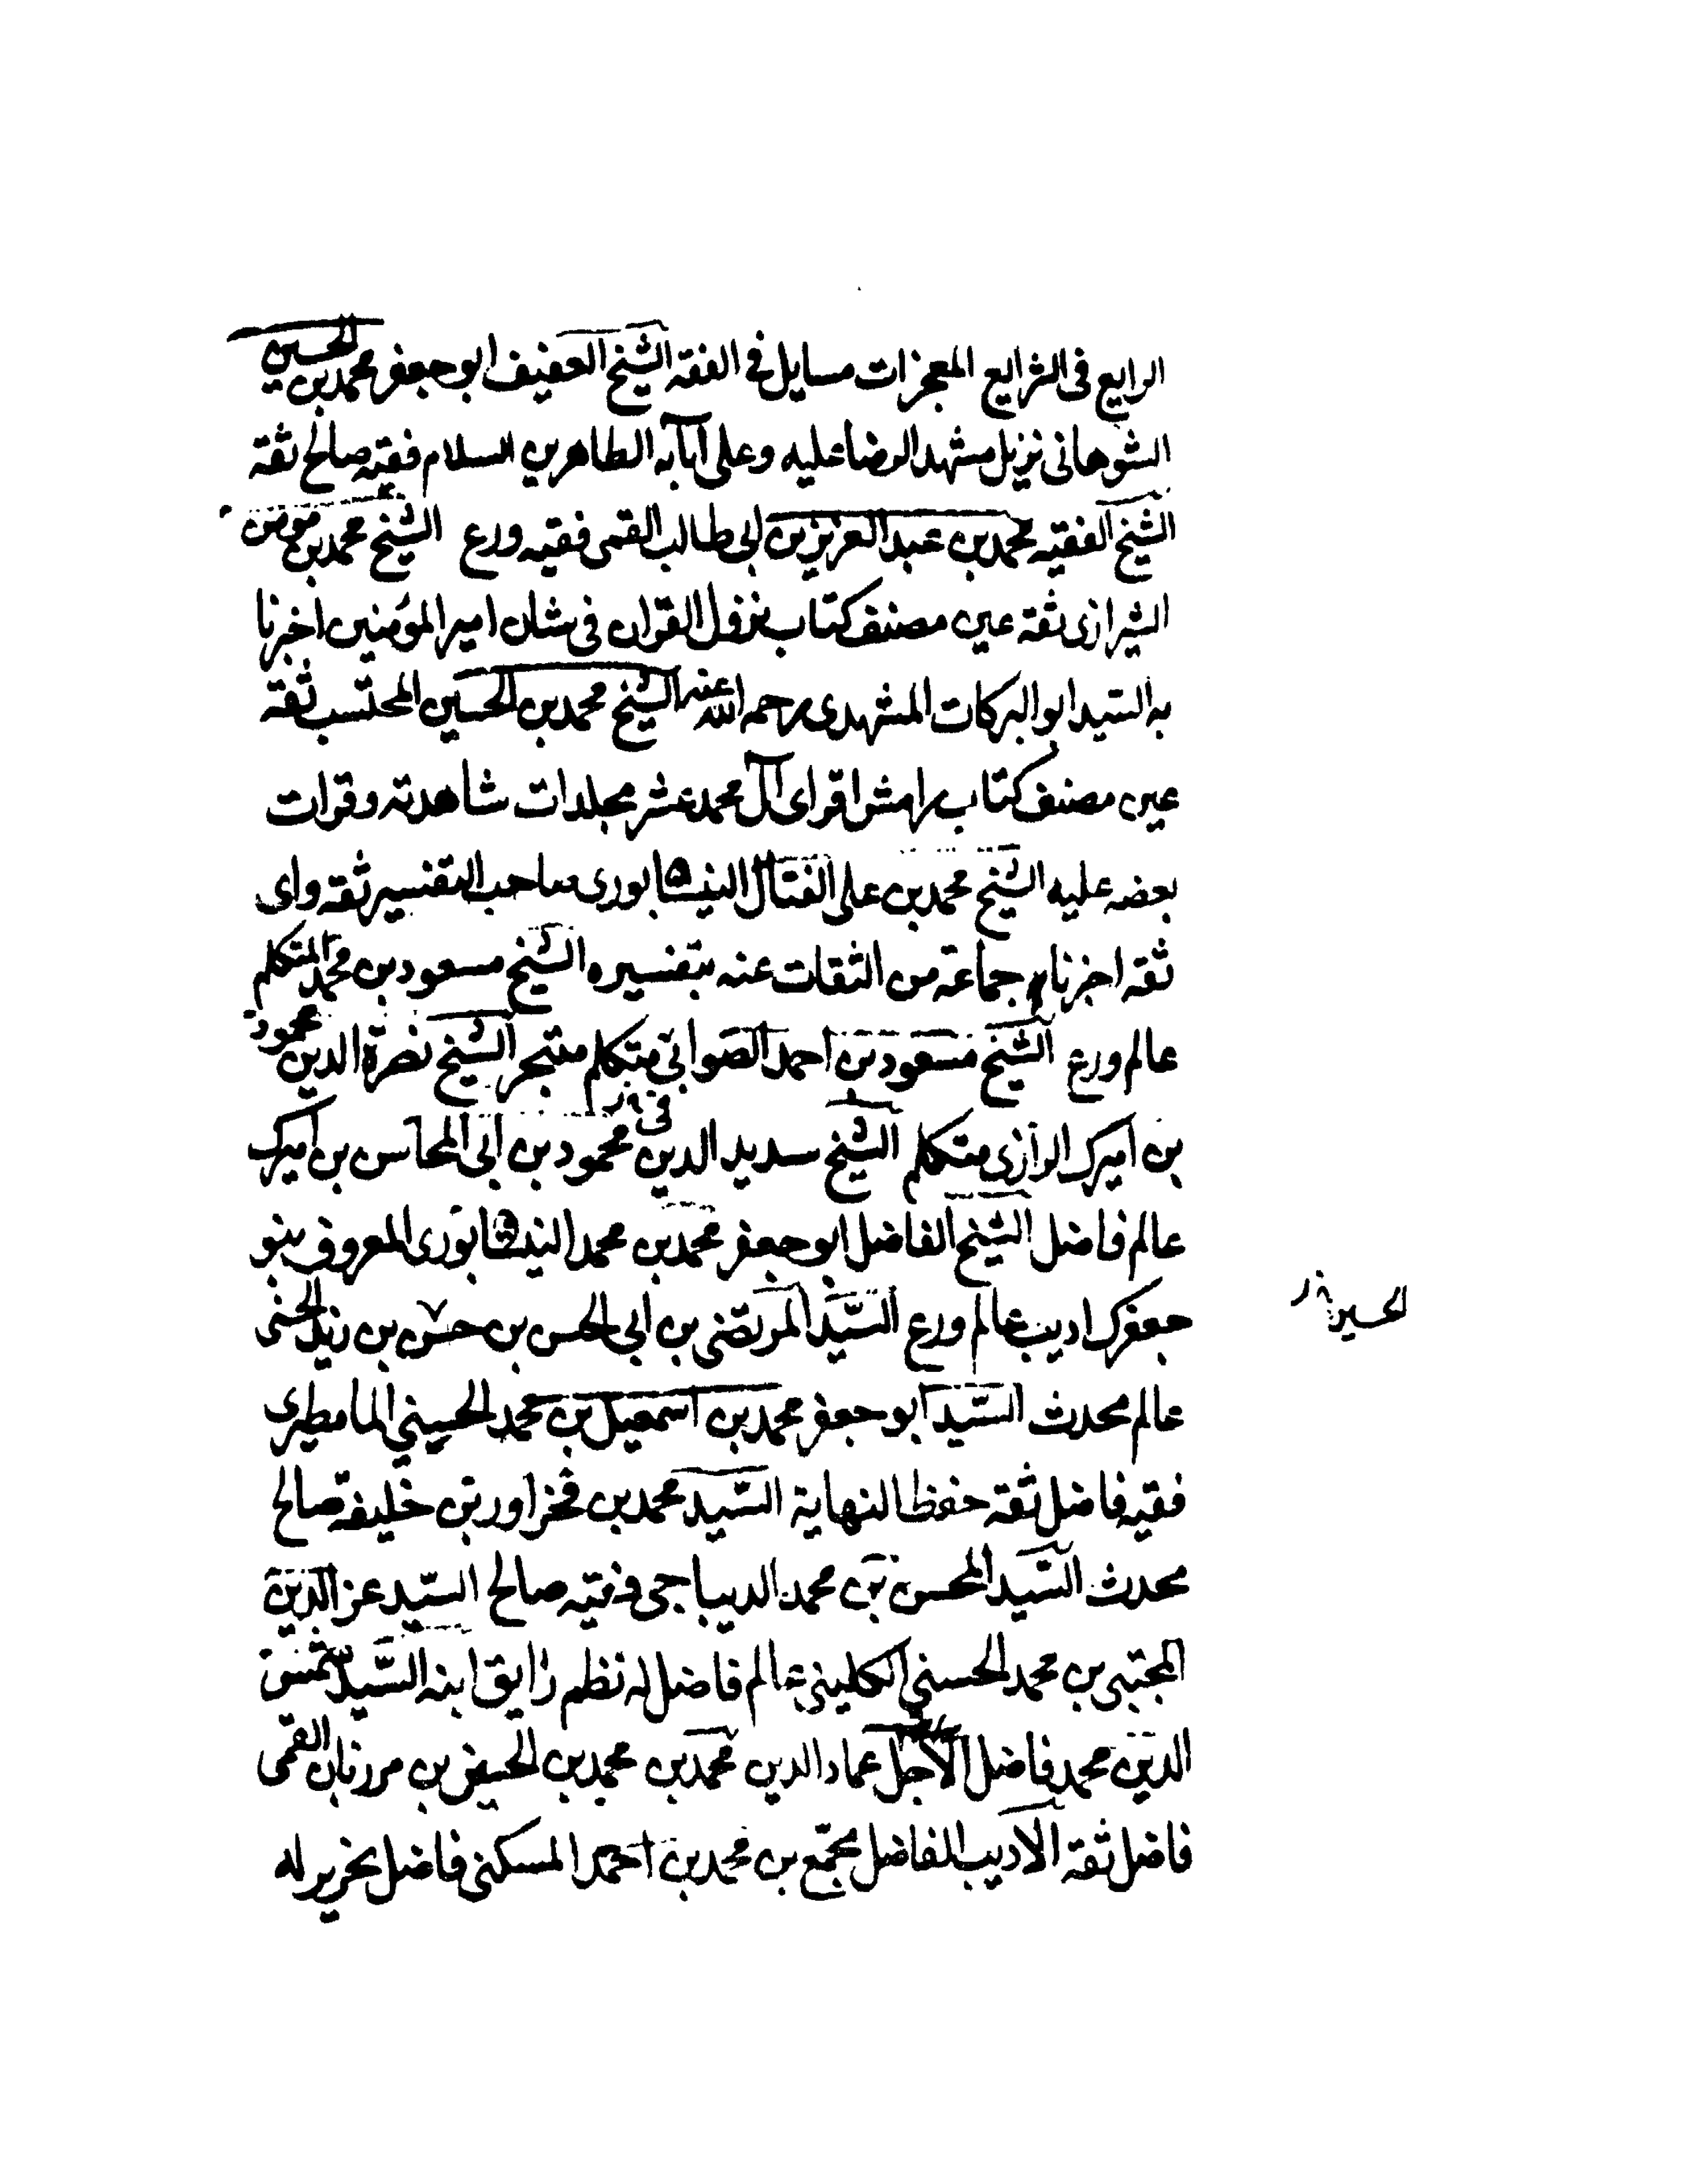 الرايع فى الشرايع المعجزات مسايل فى الفقه الشيخ العفيف ابو جعفر محمد بن الحسين
الشوهانى نزيل مشهد الرضا عليه وعلى آبآئه الطاهرين السلام فقيه صالح ثقة
الشيخ الفقيه محمد بن عبد العزيز بن ابى طالب القمى فقيه ورع الشيخ محمد بن مؤمن
الشيرازى ثقة عين مصنف كتاب نزول القرآن فى شان امير المؤمنين اخبرنا
به السيد ابو البركات المشهدى رحمه الله عنه الشيخ محمد بن الحسين المحتسب ثقة
عين مصنف كتاب رامش افراى آل محمد عشر مجلدات شاهدته وقرات
بعضه عليه الشيخ محمد بن على الفتال النيشابورى صاحب التفسير ثقة واى
ثقة اخبرنا جماعة من الثقات عنه بتفسيره الشيخ مسعود بن محمد المتكلم
عالم ورع الشيخ مسعود بن احمد الصوابى متكلم متبحر الشيخ نصرة الدين محمود
بن اميرك الرازى متكلم الشيخ سديد الدين محمود بن ابى المحاسن بن اميرك
عالم فاضل الشيخ الفاضل ابو جعفر محمد بن محمد النيشابورى المعروف بنبو
جعفرك اديب عالم ورع السيد المرتضى بن ابى الحسن بن حسن بن زيد الحسنى
الحسين
عالم محدث السيد ابو جعفر محمد بن اسمعيل بن محمد الحسينى المامطيرى
فقيه فاضل ثقة حفظ النهاية السيد محمد بن فخراور بن خليفة صالح
محدث السيد المحسن بن محمد الديباجى فقيه صالح السيد عز الدين
المجتبى بن محمد الحسنى الكلينى عالم فاضل له نظم رايق ابنه السيد شمس
الدين محمد فاضل الاجل عماد الدين محمد بن محمد بن بن مرزبان القمى
فاضل ثقة الاديب الفاضل مجمع بن محمد بن احمد المسكنى فاضل نحرير له